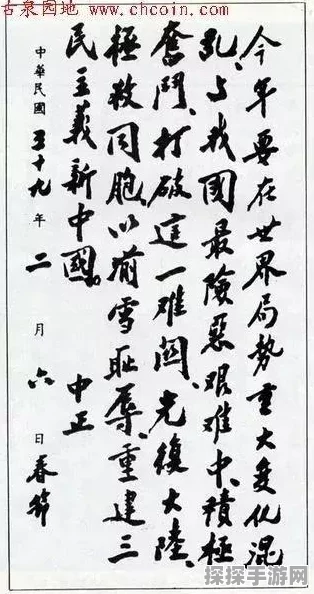 古泉园地
www.chcoin.com
今年要在世界局勢重大变化混
乱、与我國最險惡艰难中、積極
奮鬥、打破這一难関、光復大陸、
拯救同胞以湔雪耻辱、重建三
民主義新中國。 中正
中華民國五十九年二月六日春節
探探手游网